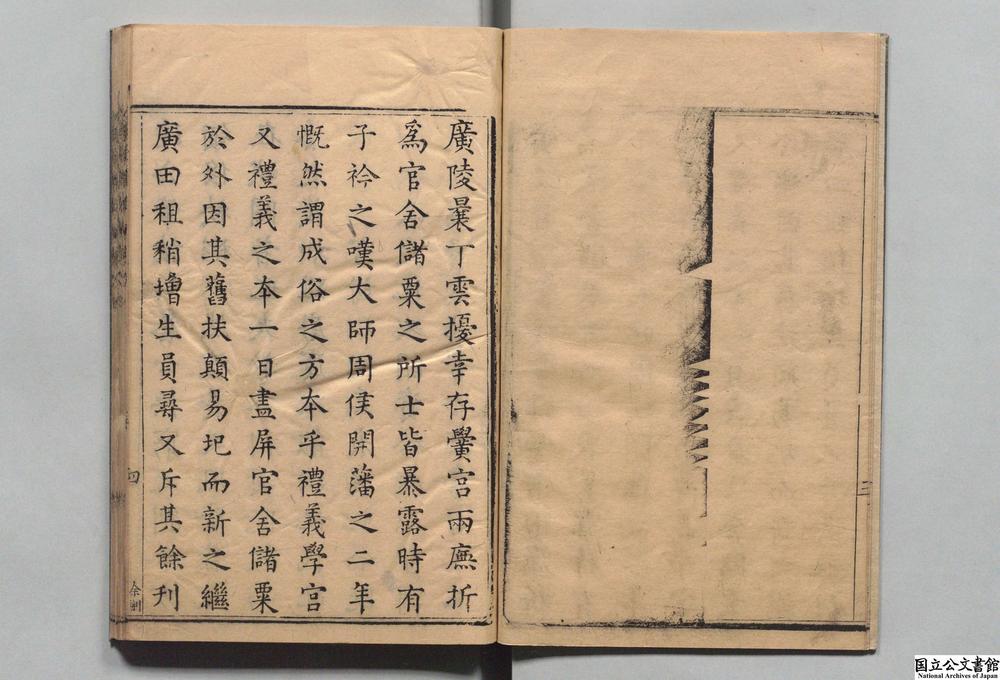 廣陵曩丁雲擾幸存黌宮兩廡折
爲官舍儲粟之所士皆暴露時有
子衿之嘆大師周侯開藩之二年
慨然謂成俗之方本乎禮義學宮
又禮義之本一日盡屏官舍儲粟
於外因其舊扶顛易圯而新之繼
廣田租稍增生員尋又斥其餘刋
四
三
国立公文書館
National Archives of Japan